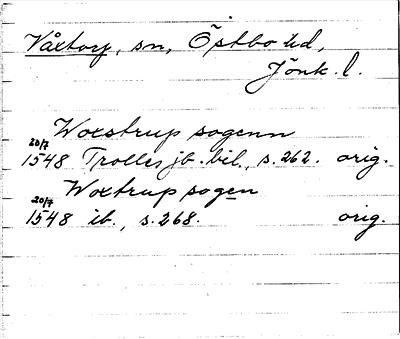 Våxtorp, sn, Östbo hd,
Jönk. l.
Woxstrup sogenn
20/7 1548 Trolles jb. bil., s. 262. orig.
Woxtrup sogen
20/7 1548 ib., s. 268. orig.